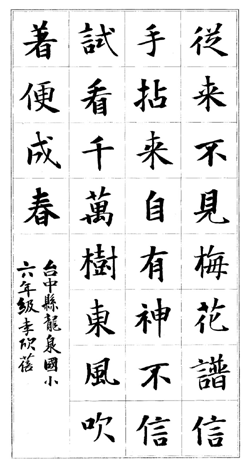 從来不見梅花譜信
手拈来自有神不信
試看千萬樹東風吹
著便成春
台中縣龍泉國小
六年級李欣蓓